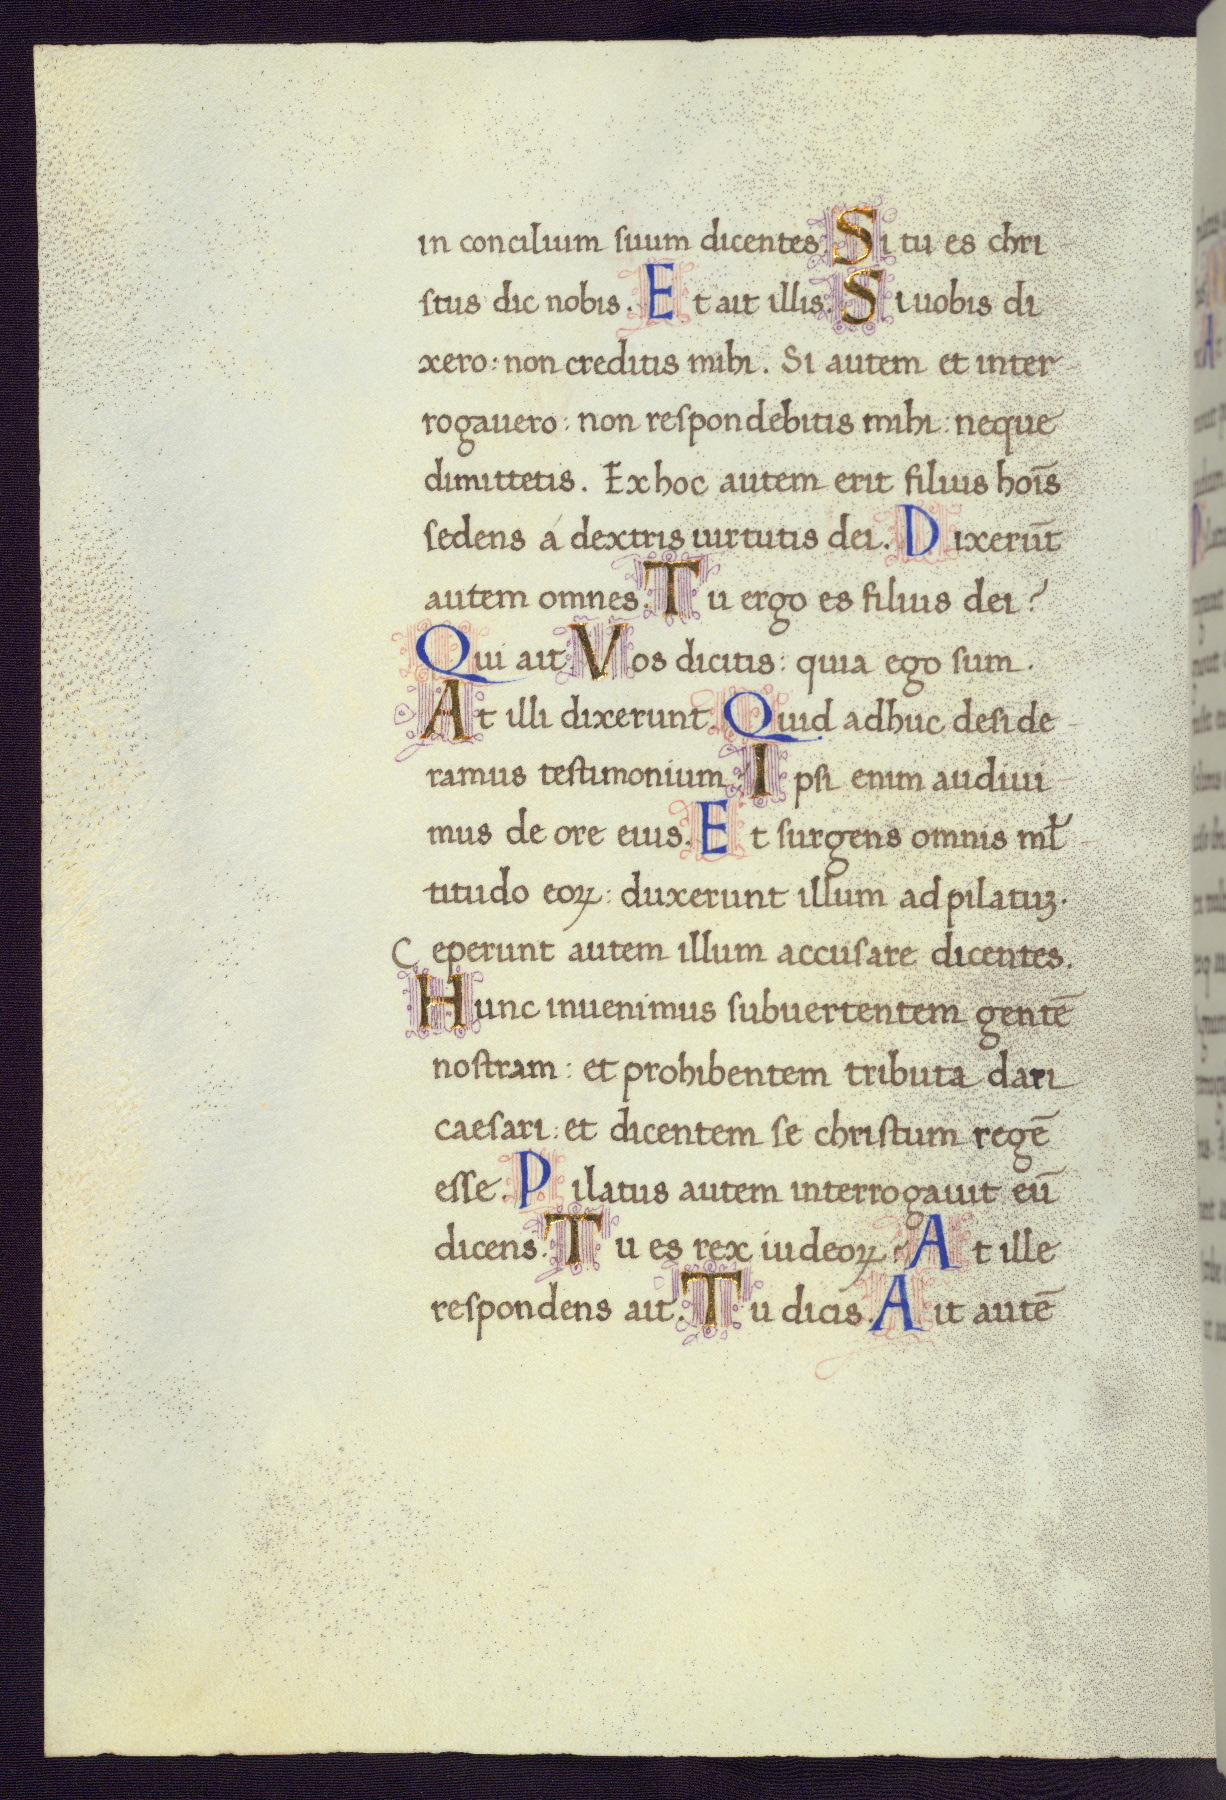 in concilium suum dicentes. Si tu es chri
stus dic nobis. Et ait illis. Si uobis di
xero: non creditis mihi. Si autem et inter
rogauero: non respondebitis mihi: neque
dimittetis. Ex hoc autem erit filius hoīs
sedens á dextris uirtutis dei. Dixerūt
autem omnes. Tu ergo es filius dei?
Qui ait. Vos dicitis: quia ego sum.
At illi dixerunt. Quid adhuc deside
ramus testimonium? Ipsi enim audiui
mus de ore eius. Et surgens omnis ml̄
titudo eoꝝ: duxerunt illum ad pilatuꝫ.
Ceperunt autem illum accusare dicentes.
Hunc inuenimus subuertentem gentē
nostram: et prohibentem tributa dari
caesari: et dicentem se christum regē
esse. Pilatus autem interrogauit eū
dicens. Tu es rex iudeoꝝ? At ille
respondens ait. Tu dicis. Ait autē